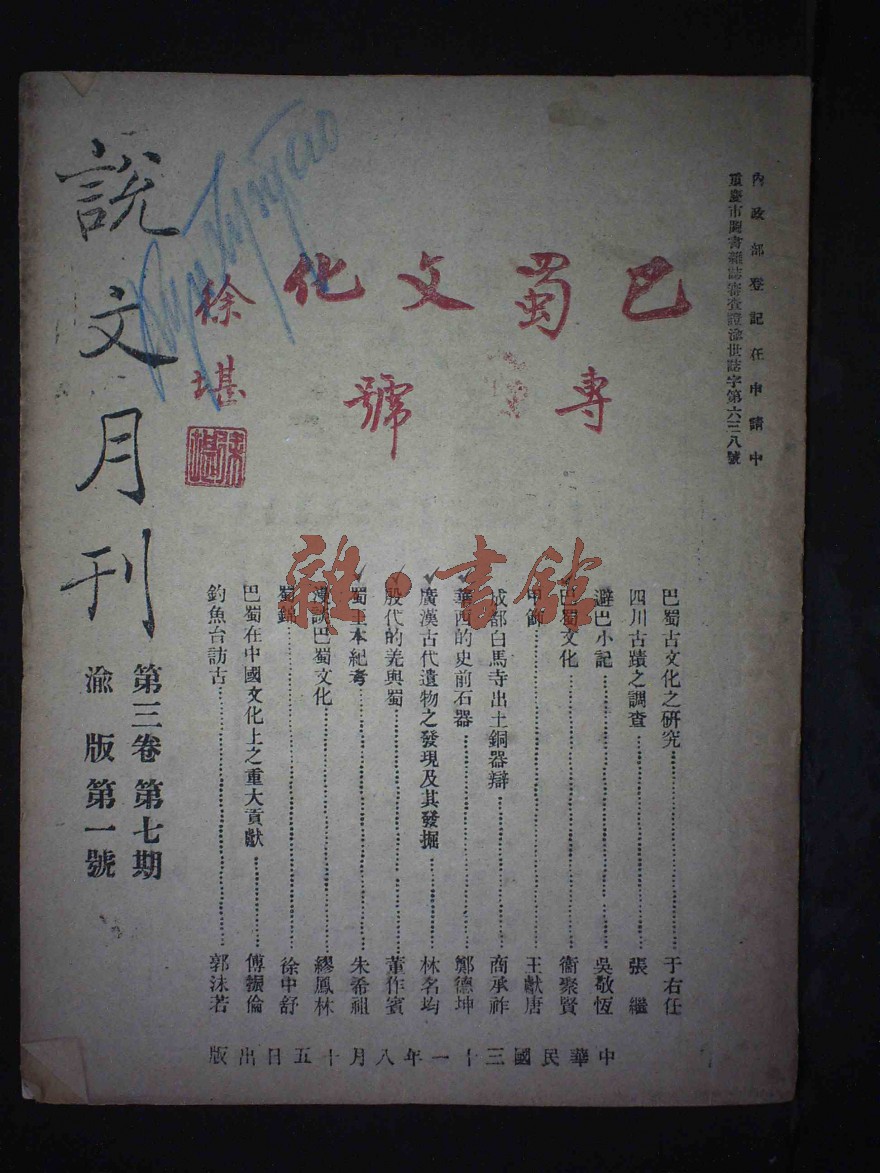 內政部登記在申請中
重慶市圖書雜誌審查證渝世誌字第六三八號
巴蜀文化
專號
徐堪
說文月刊
第三卷第七期
渝版第一號
巴蜀古文化之研究 于右任
四川古蹟之調查 張繼
避巴小記 吳敬恆
巴蜀文化 衞聚賢
甲飾 王獻唐
成都白馬寺出土銅器辯 商承祚
華西的史前石器 鄭德坤
廣漢古代遺物之發現及其發掘 林名均
殷代的羌與蜀 董作賓
蜀王本紀考 朱希祖
漫談巴蜀文化 繆鳳林
蜀錦 徐中舒
巴蜀在中國文化上之重大貢獻 傅振倫
釣魚台訪古 郭沫若
中華民國三十一年八月十五日出版
雜·書館